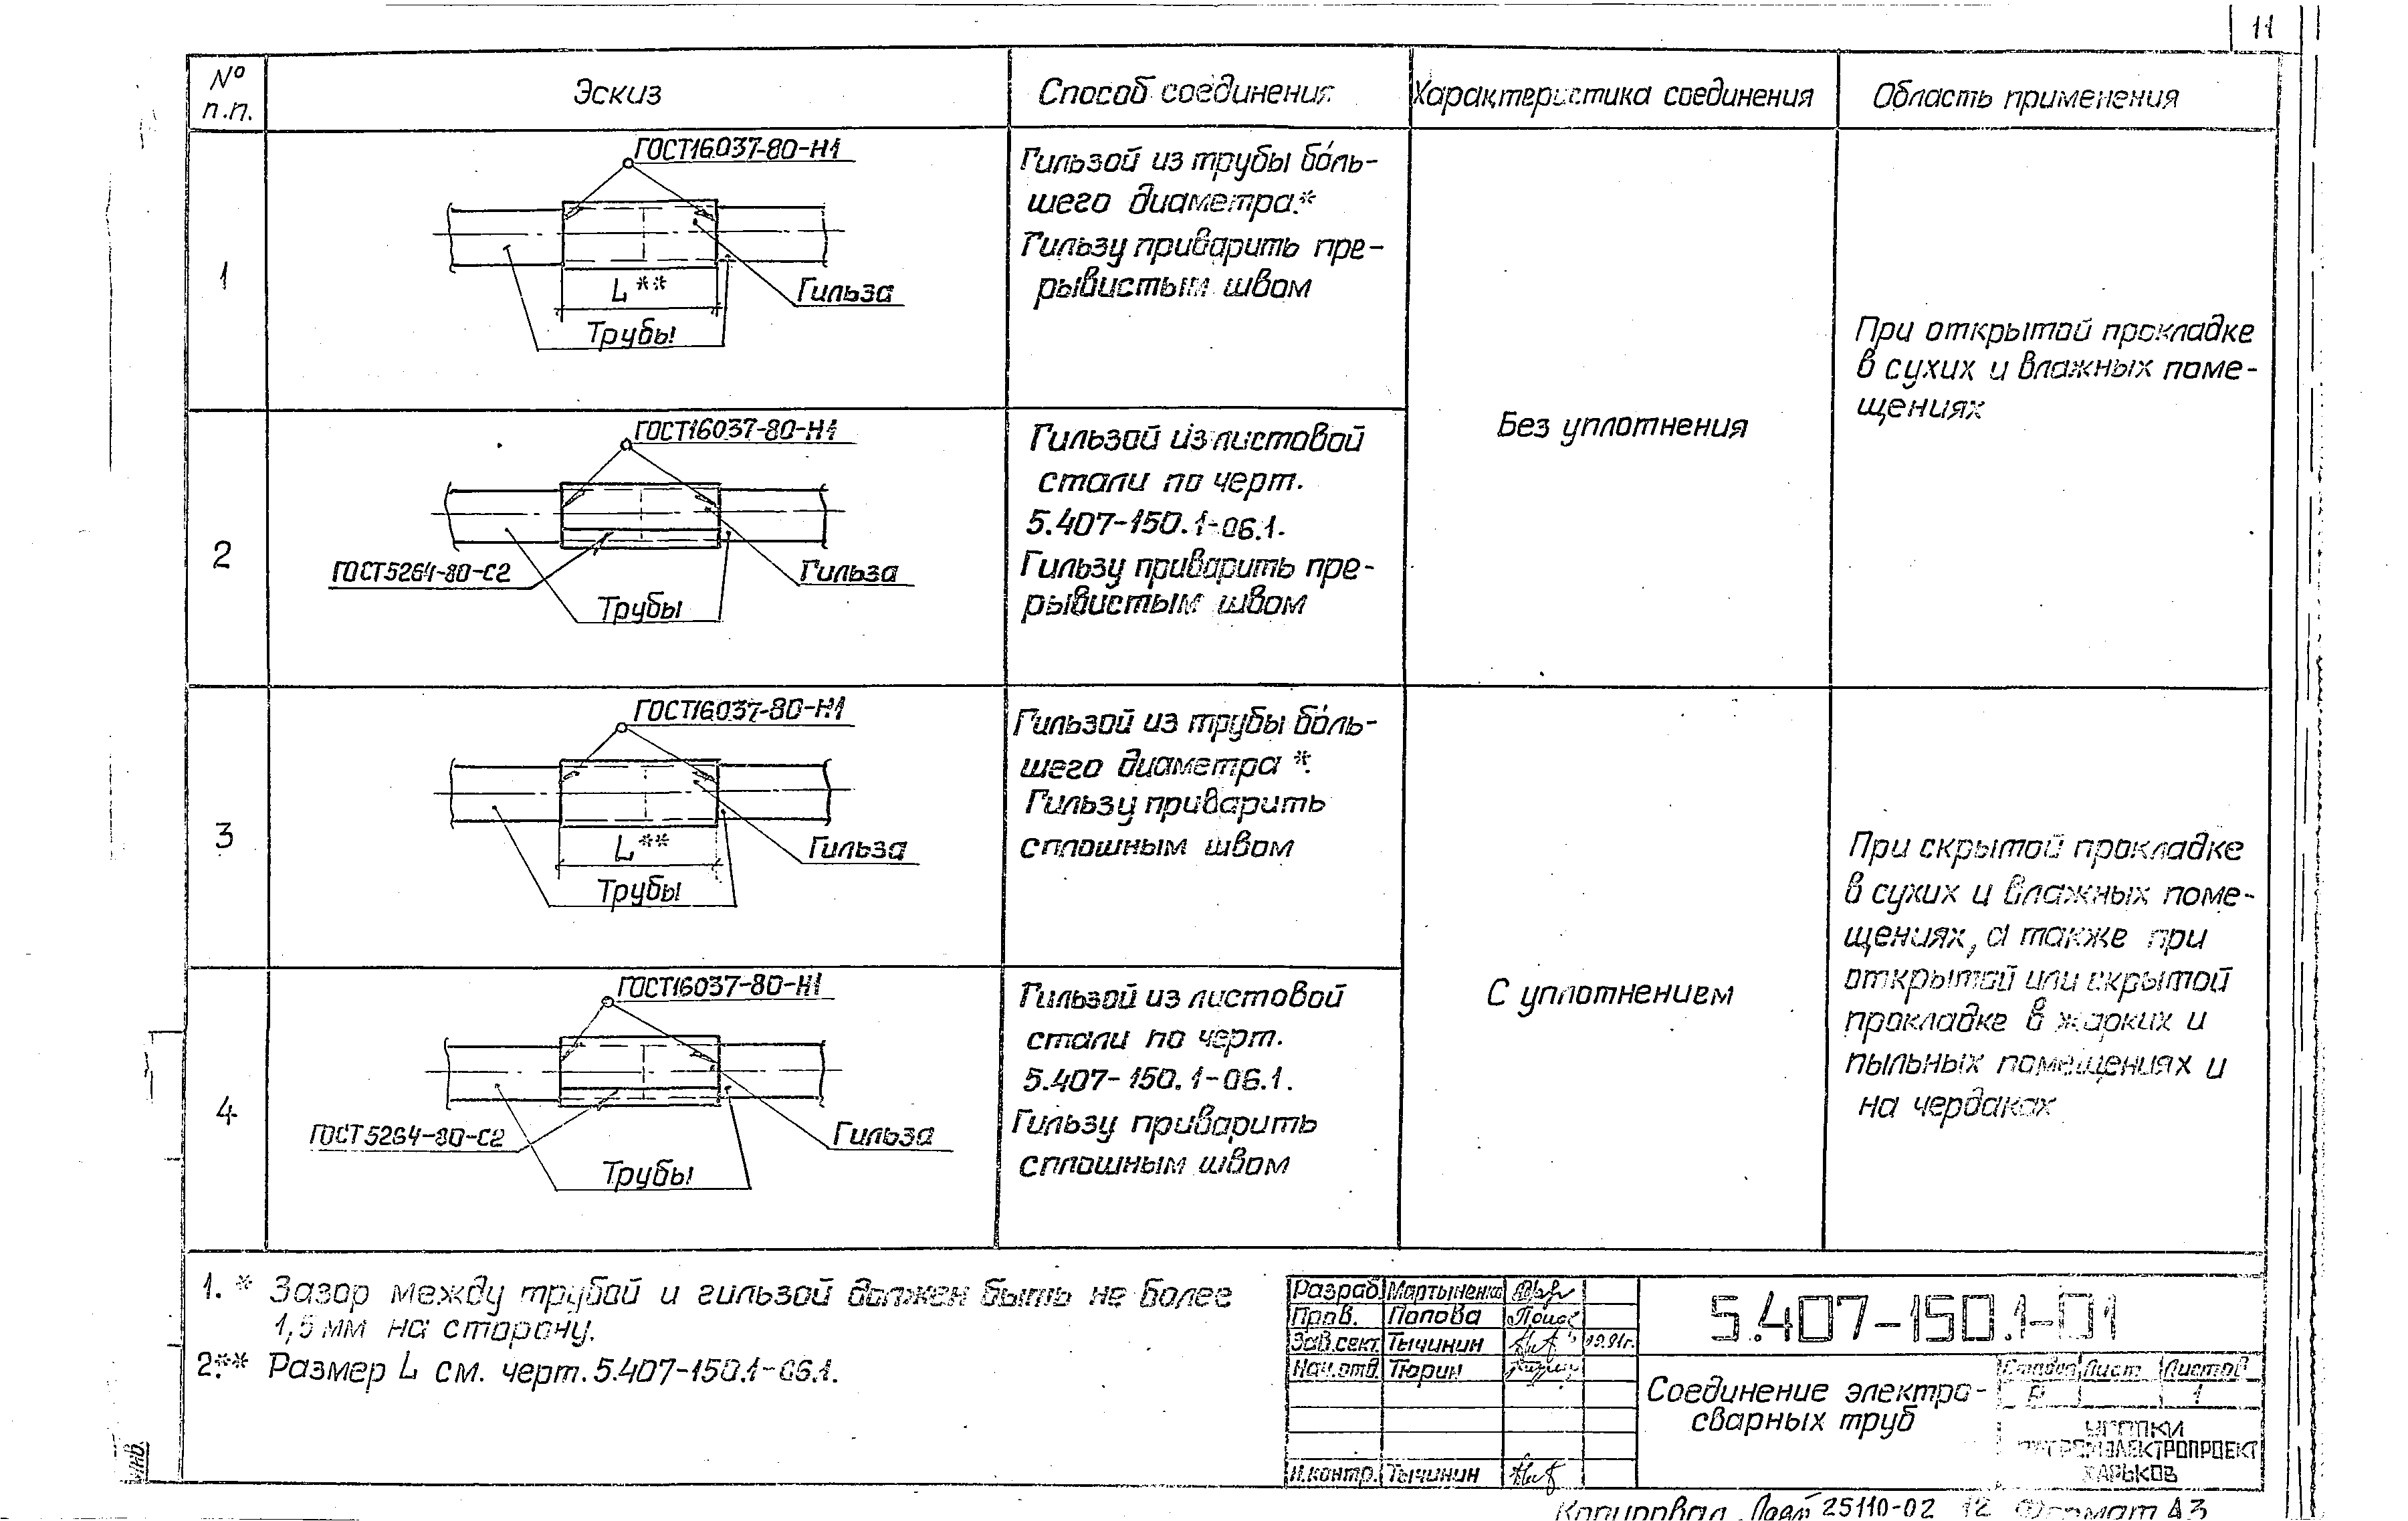 11
№ п.п.
Эскиз
Способ соединения
Характеристика соединения
Область применения
1
ГОСТ16037-80-Н1
L**
Гильза
Трубы
Гильзой из трубы боль-
шего диаметра.*
Гильзу приварить пре-
рывистым швом
Без уплотнения
При открытой прокладке
в сухих и влажных поме-
щениях
2
ГОСТ16037-80-Н1
ГОСТ5264-80-С2
Гильза
Трубы
Гильзой из листовой
стали по черт.
5.407-150.1-06.1.
Гильзу приварить пре-
рывистым швом
3
ГОСТ16037-80-Н1
L**
Гильза
Трубы
Гильзой из трубы боль-
шего диаметра*.
Гильзу приварить
сплошным швом
С уплотнением
При скрытой прокладке
в сухих и влажных поме-
щениях, а также при
открытой или скрытой
прокладке в жарких и
пыльных помещениях и
на чердаках
4
ГОСТ16037-80-Н1
ГОСТ5264-80-С2
Гильза
Трубы
Гильзой из листовой
стали по черт.
5.407-150.1-06.1.
Гильзу приварить
сплошным швом
1.* Зазор между трубой и гильзой должен быть не более
1,5 мм на сторону.
2.** Размер L см. черт. 5.407-150.1-06.1.
Разраб. Мартыненко
Пров. Попова
Зав.сект. Тычинин
Нач.отд. Тюрин
Н.контр. Тычинин
5.407-150.1-01
Соединение электро-
сварных труб
Стадия Лист Листов
Р 1
ТЯЖПРОМЭЛЕКТРОПРОЕКТ
ХАРЬКОВ
Инв.
Копировал 25110-02 12 Формат А3